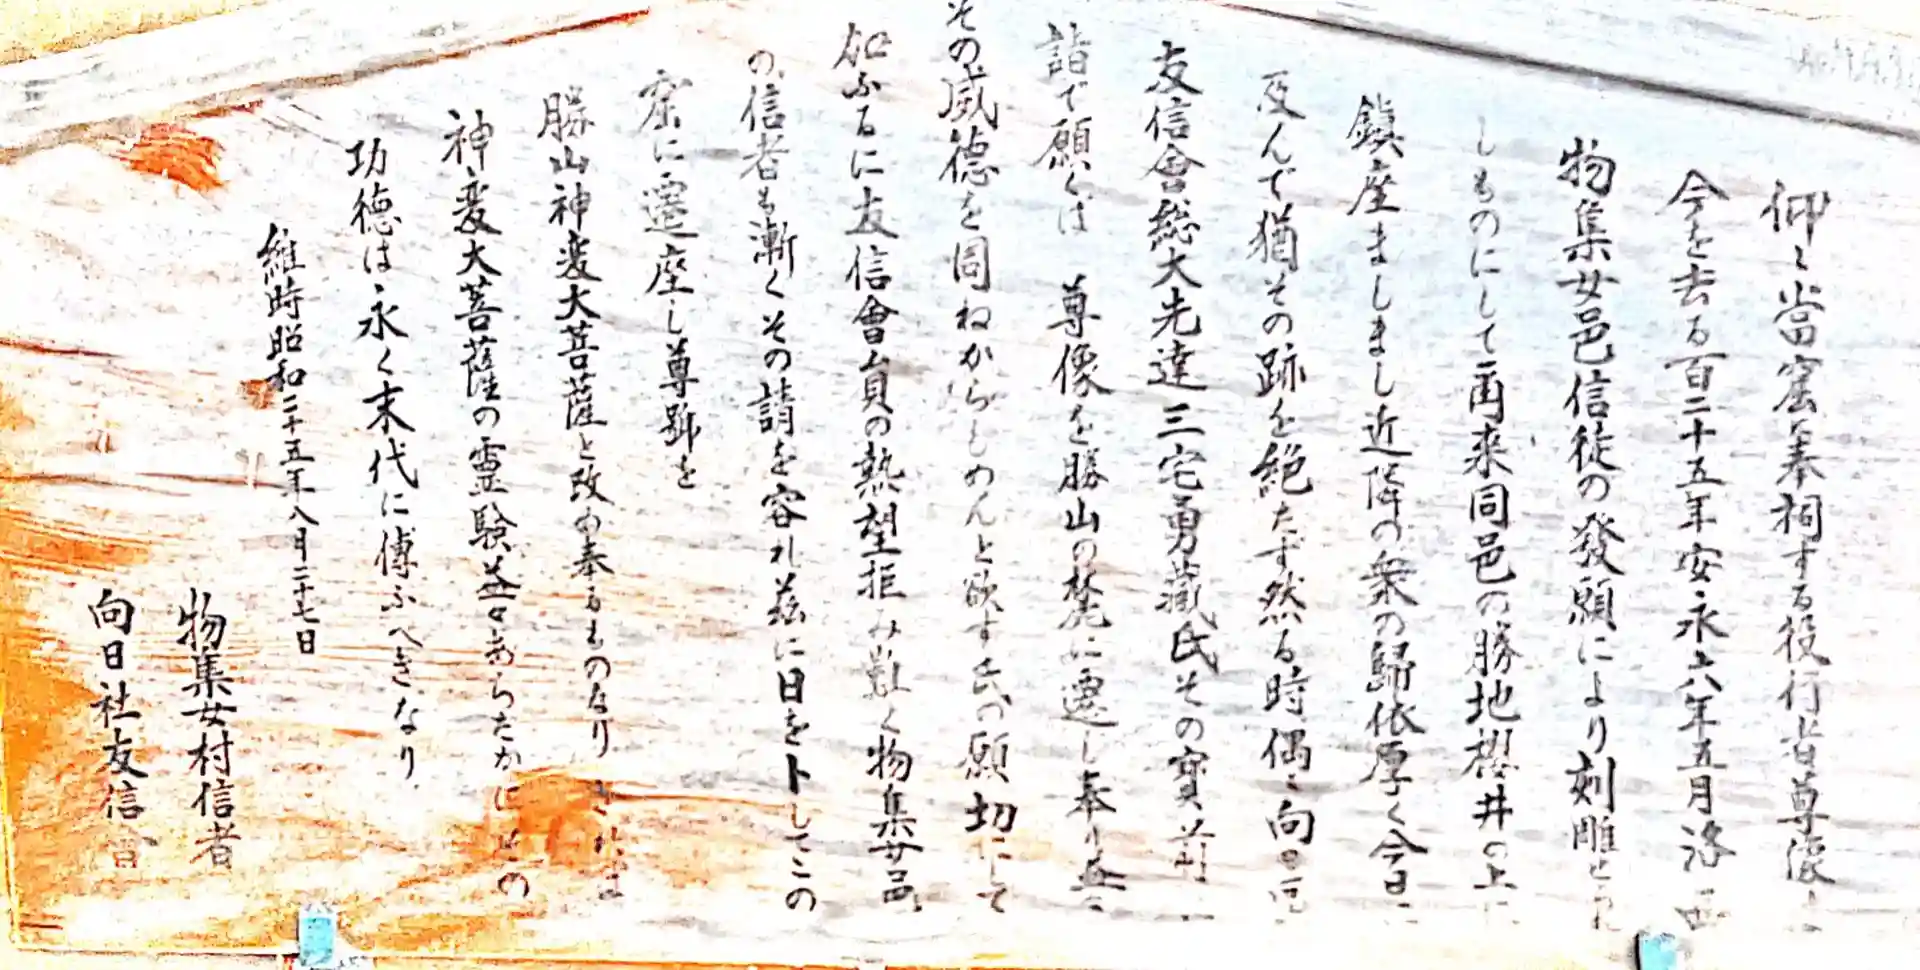 仰々當窟ニ奉祠する役行者尊像は
今を去る百二十五年安永六年五月洛西
物集女邑信徒の發願により刻雕され
しものにして爾来同邑の勝地櫻井の上に
鎮座ましまし近隣の衆の歸依厚く今日に
及んで猶その跡を絶たず然る時偶ニ向日
友信會総大先達三宅勇藏氏その寶前に
詣で願くは 尊像を勝山の麓に遷し奉り益々
その威徳を周ねからしめんと欲す氏の願切にして
加ふるに友信會員の熱望拒み難く物集女邑
の信者も漸くその請を容れ茲に日を卜してこの
窟に遷座し尊号を
勝山神変大菩薩と改め奉るものなり
神変大菩薩の霊験益々あらたかに の
功徳は永く末代に傳ふべきなり
維時昭和二十五年八月二十七日
物集女村信者
向日社友信會